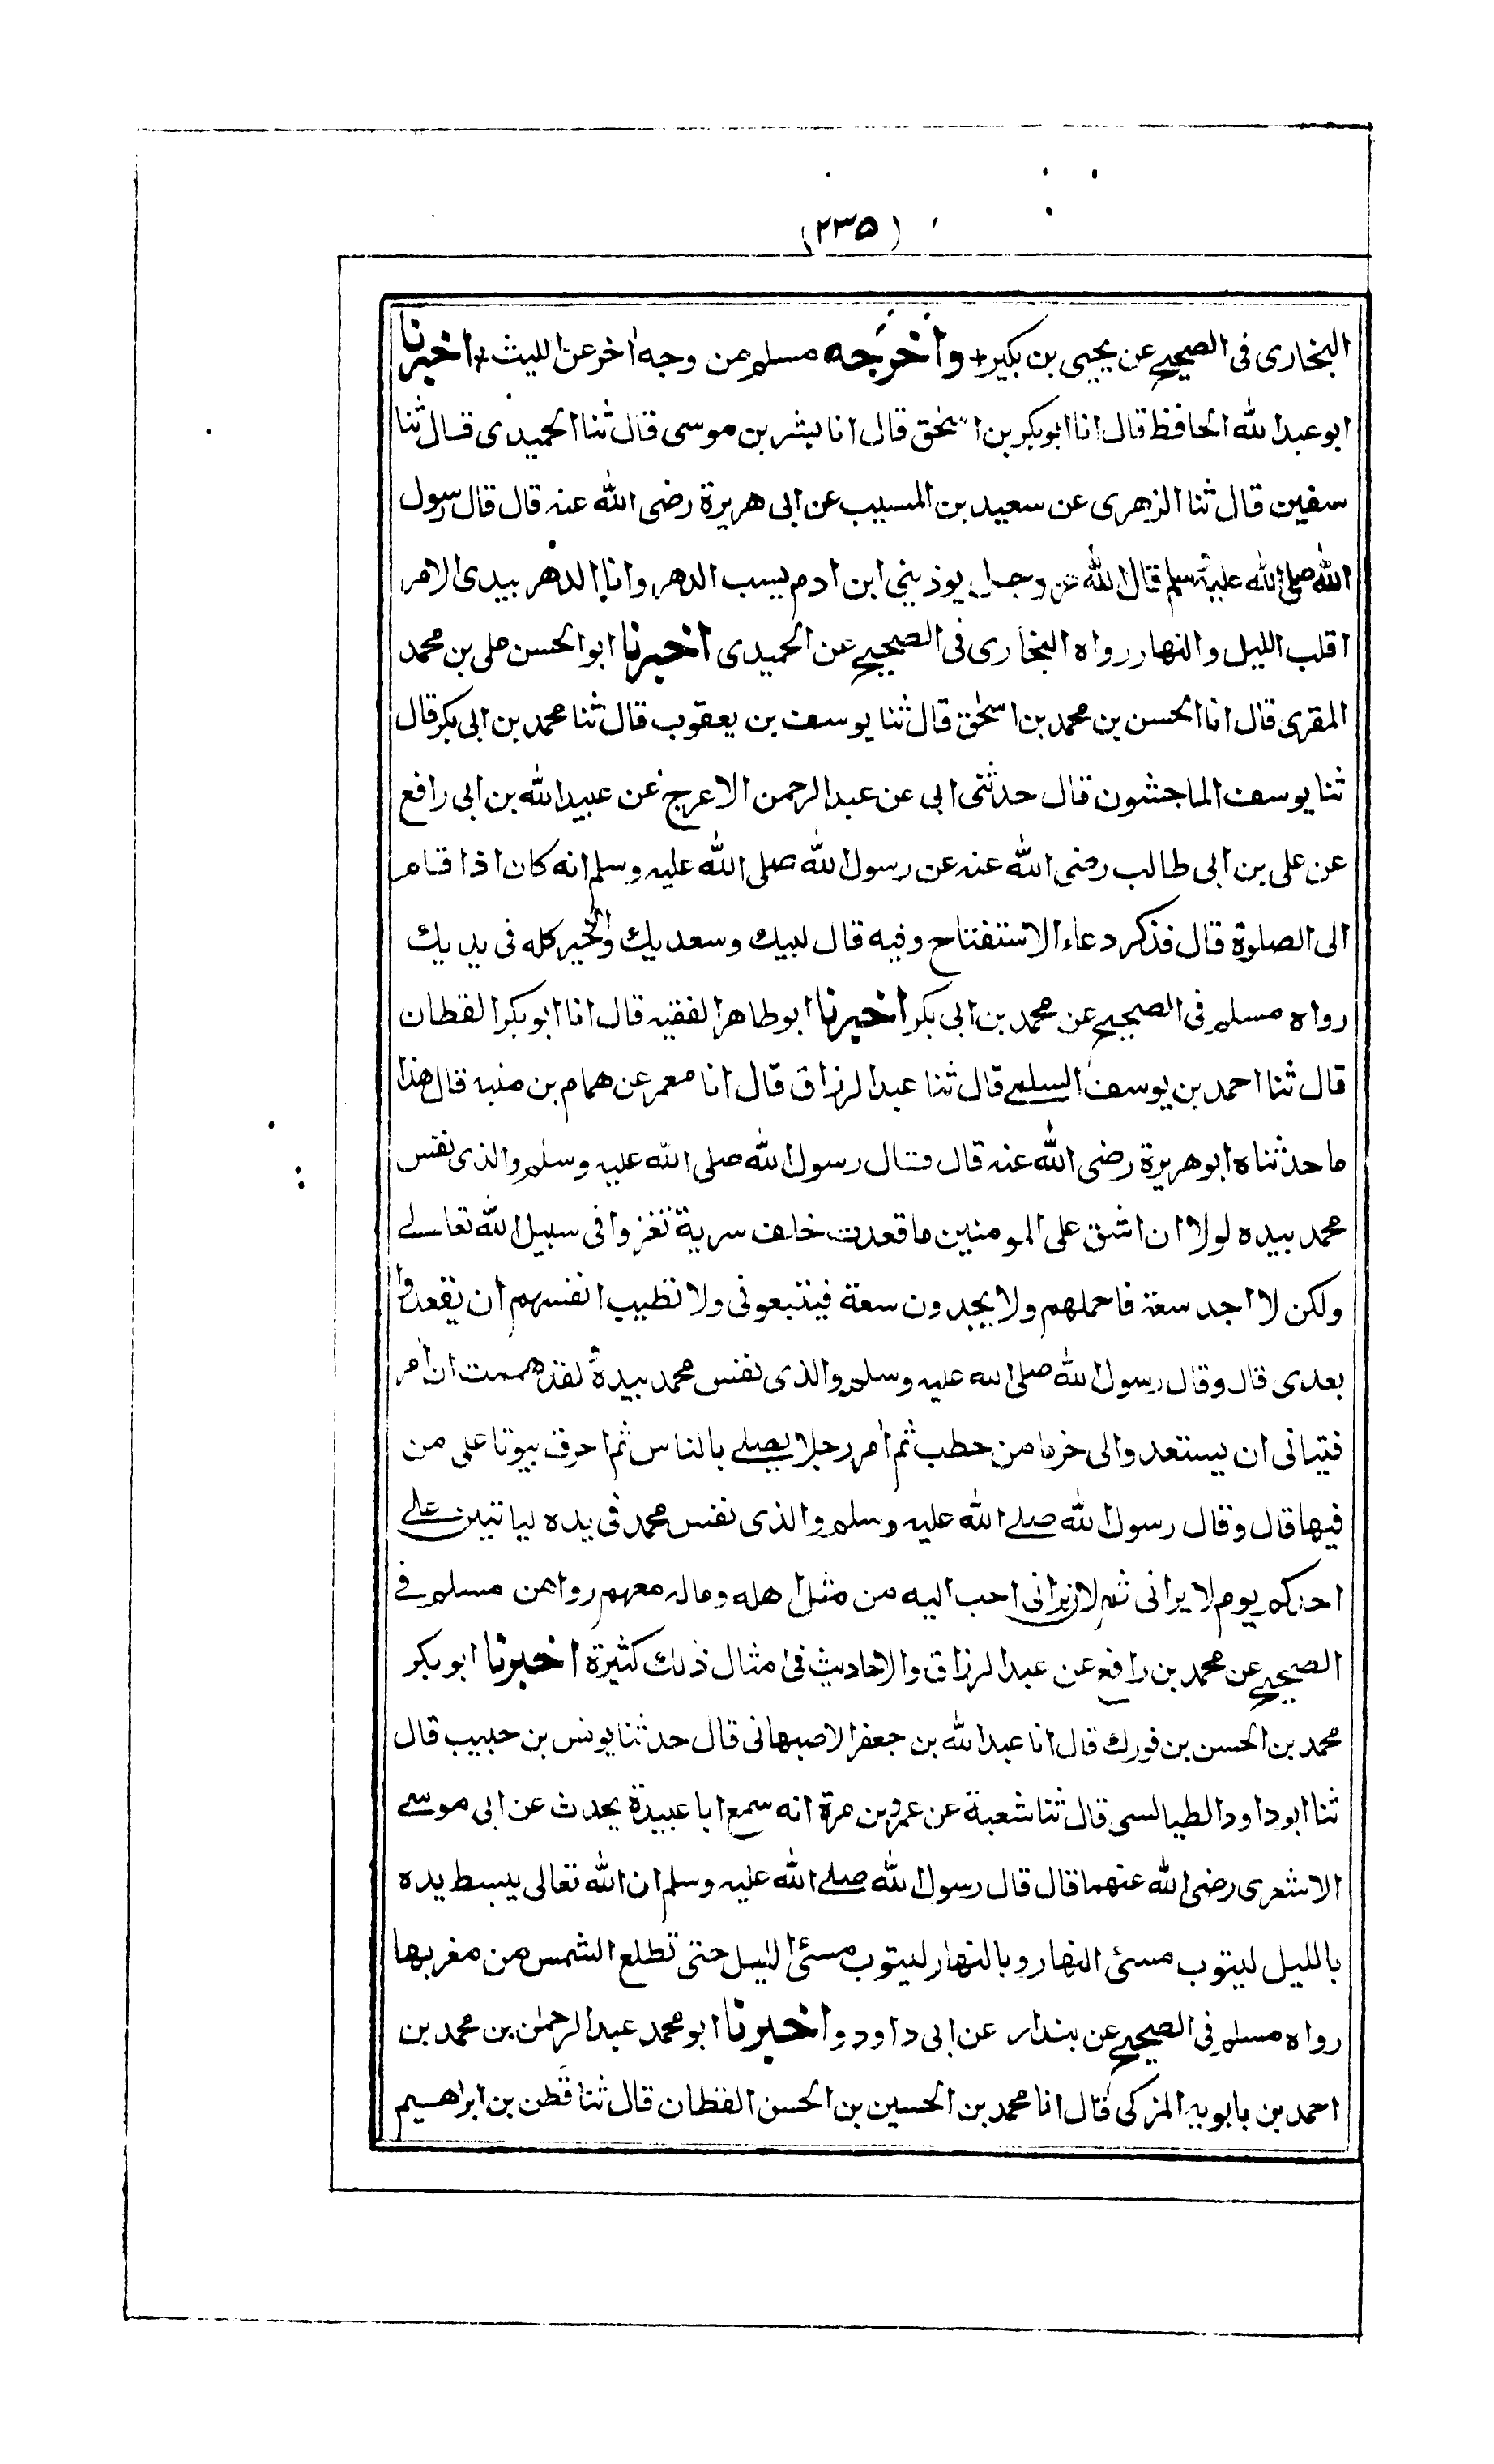 (۲۳۵)
البخارى فى الصحيح عن يحيى بن بكير+ واخرجه مسلم من وجه اخر عن الليث+ اخبرنا
ابو عبد الله الحافظ قال انا ابو بكر بن اسحٰق قال انا بشر بن موسى قال ثنا الحميدى قال ثنا
سفين قال ثنا الزهرى عن سعيد بن المسيب عن ابى هريرة رضى الله عنه قال قال رسول
الله صلى الله عليه وسلم قال الله عز وجل يوذيني ابن ادم يسب الدهر وانا الدهر بيدى الامر
اقلب الليل والنهار رواه البخارى فى الصحيح عن الحميدى اخبرنا ابو الحسن على بن محمد
المقرى قال انا الحسن بن محمد بن اسحٰق قال ثنا يوسف بن يعقوب قال ثنا محمد بن ابى بكر قال
ثنا يوسف الماجشون قال حدثنى ابى عن عبد الرحمن الاعرج عن عبيد الله بن ابى رافع
عن على بن ابى طالب رضى الله عنه عن رسول الله صلى الله عليه وسلم انه كان اذا قام
الى الصلوة قال فذكر دعاء الاستفتاح وفيه قال لبيك وسعديك والخير كله فى يديك
رواه مسلم فى الصحيح عن محمد بن ابى بكر اخبرنا ابو طاهر الفقيه قال انا ابو بكر القطان
قال ثنا احمد بن يوسف السلمے قال ثنا عبد الرزاق قال انا معمر عن همام بن منبه قال هذا
ما حدثناه ابو هريرة رضى الله عنه قال قال رسول الله صلى الله عليه وسلم والذى نفس
محمد بيده لولا ان اشق على المومنين ما قعدت خلف سرية تغزوا فى سبيل الله تعالے
ولكن لا اجد سعة فاحملهم ولا يجدون سعة فيتبعونى ولا تطيب انفسهم ان يقعدوا
بعدى قال وقال رسول الله صلى الله عليه وسلم والذى نفس محمد بيده لقد هممت ان اٰمر
فتيانى ان يستعدوا لى حزما من حطب ثم اٰمر رجلا يصلے بالناس ثم احرق بيوتا على من
فيها قال وقال رسول الله صلے الله عليه وسلم والذى نفس محمد فى يده لياتين علے
احدكم يوم لا يرانى ثم لان يرانى احب اليه من مثل اهله وماله معهم رواهن مسلم فے
الصحيح عن محمد بن رافع عن عبد الرزاق والاحاديث فى امثال ذلك كثيرة اخبرنا ابو بكر
محمد بن الحسن بن فورك قال انا عبد الله بن جعفر الاصبهانى قال حدثنا يونس بن حبيب قال
ثنا ابو داود الطيالسى قال ثنا شعبة عن عمرو بن مرة انه سمع ابا عبيدة يحدث عن ابى موسے
الاشعرى رضى الله عنهما قال قال رسول الله صلے الله عليه وسلم ان الله تعالى يبسط يده
بالليل ليتوب مسئ النهار وبالنهار ليتوب مسئ الليل حتى تطلع الشمس من مغربها
رواه مسلم فى الصحيح عن بندار عن ابى داود واخبرنا ابو محمد عبد الرحمٰن بن محمد بن
احمد بن بابويه المزكى قال انا محمد بن الحسين بن الحسن القطان قال ثنا قطن بن ابراهيم